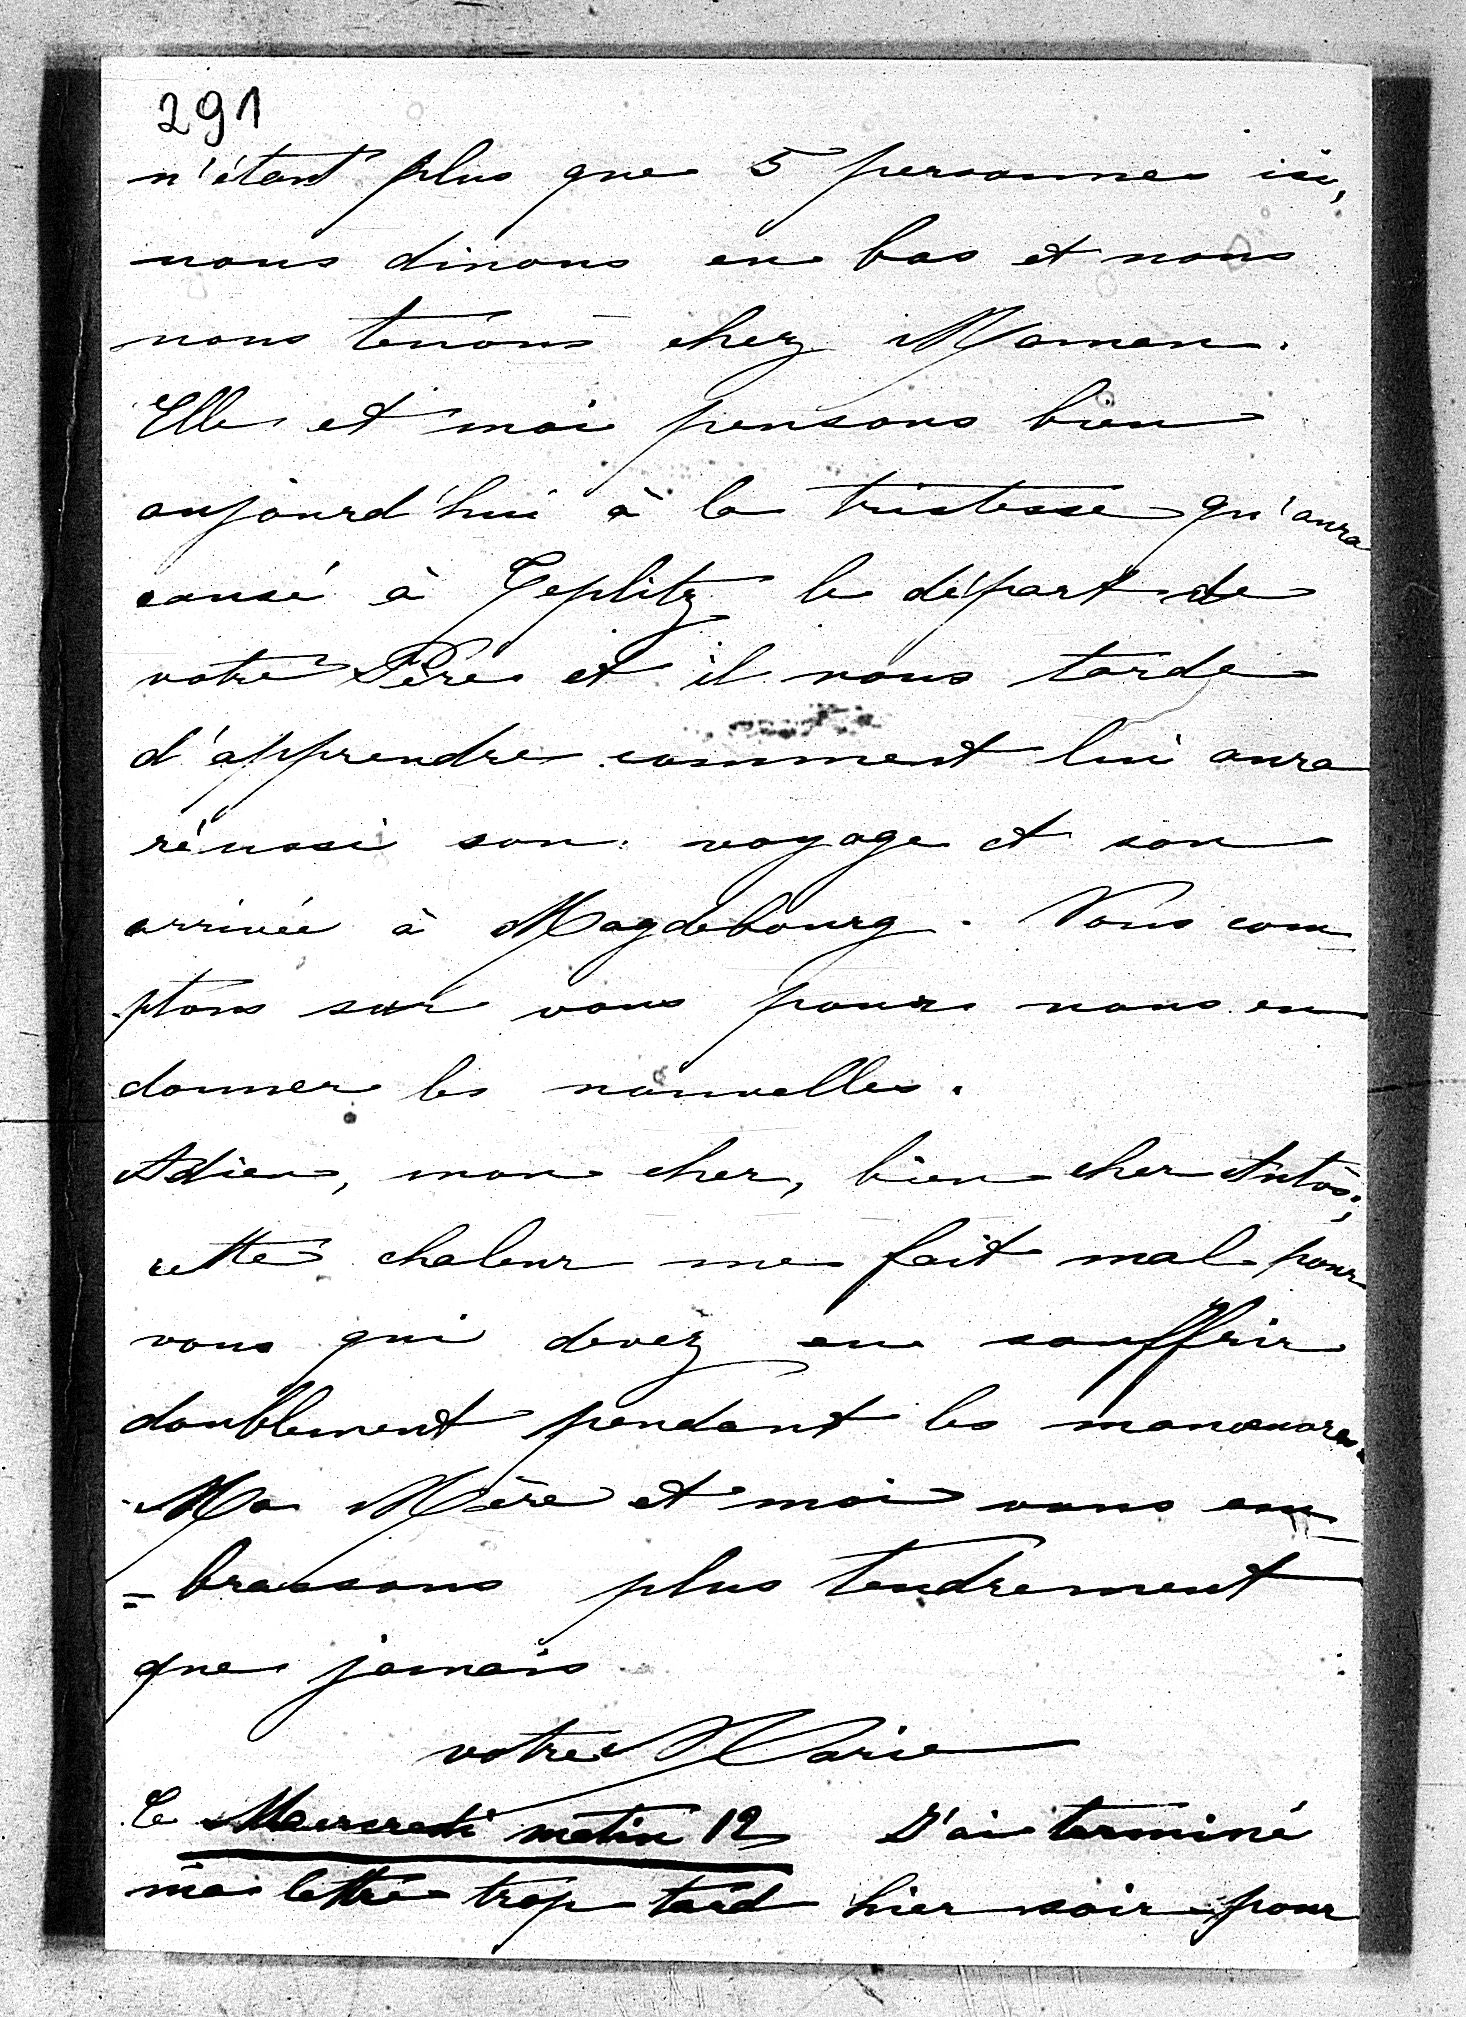 291
n'étant plus que 5 personnes ici,
nous dinons en bas et nous
nous tenons chez Maman.
Elle et moi pensons bien
aujourd'hui à la tristesse qu'aura
causé à Teplitz le départ de
votre Père et il nous tarde
d'apprendre comment lui aura
réussi son voyage et son
arrivée à Magdebourg. Nous com-
ptons sur vous pour nous en
donner les nouvelles.
Adieu, mon cher, bien cher Antos;
cette chaleur me fait mal pour
vous qui devez en souffrir
doublement pendant les manœuvres.
Ma Mère et moi vous em-
=brassons plus tendrement
que jamais
votre Marie
Ce Mercredi matin 12 J'ai terminé
ma lettre trop tard hier soir pour